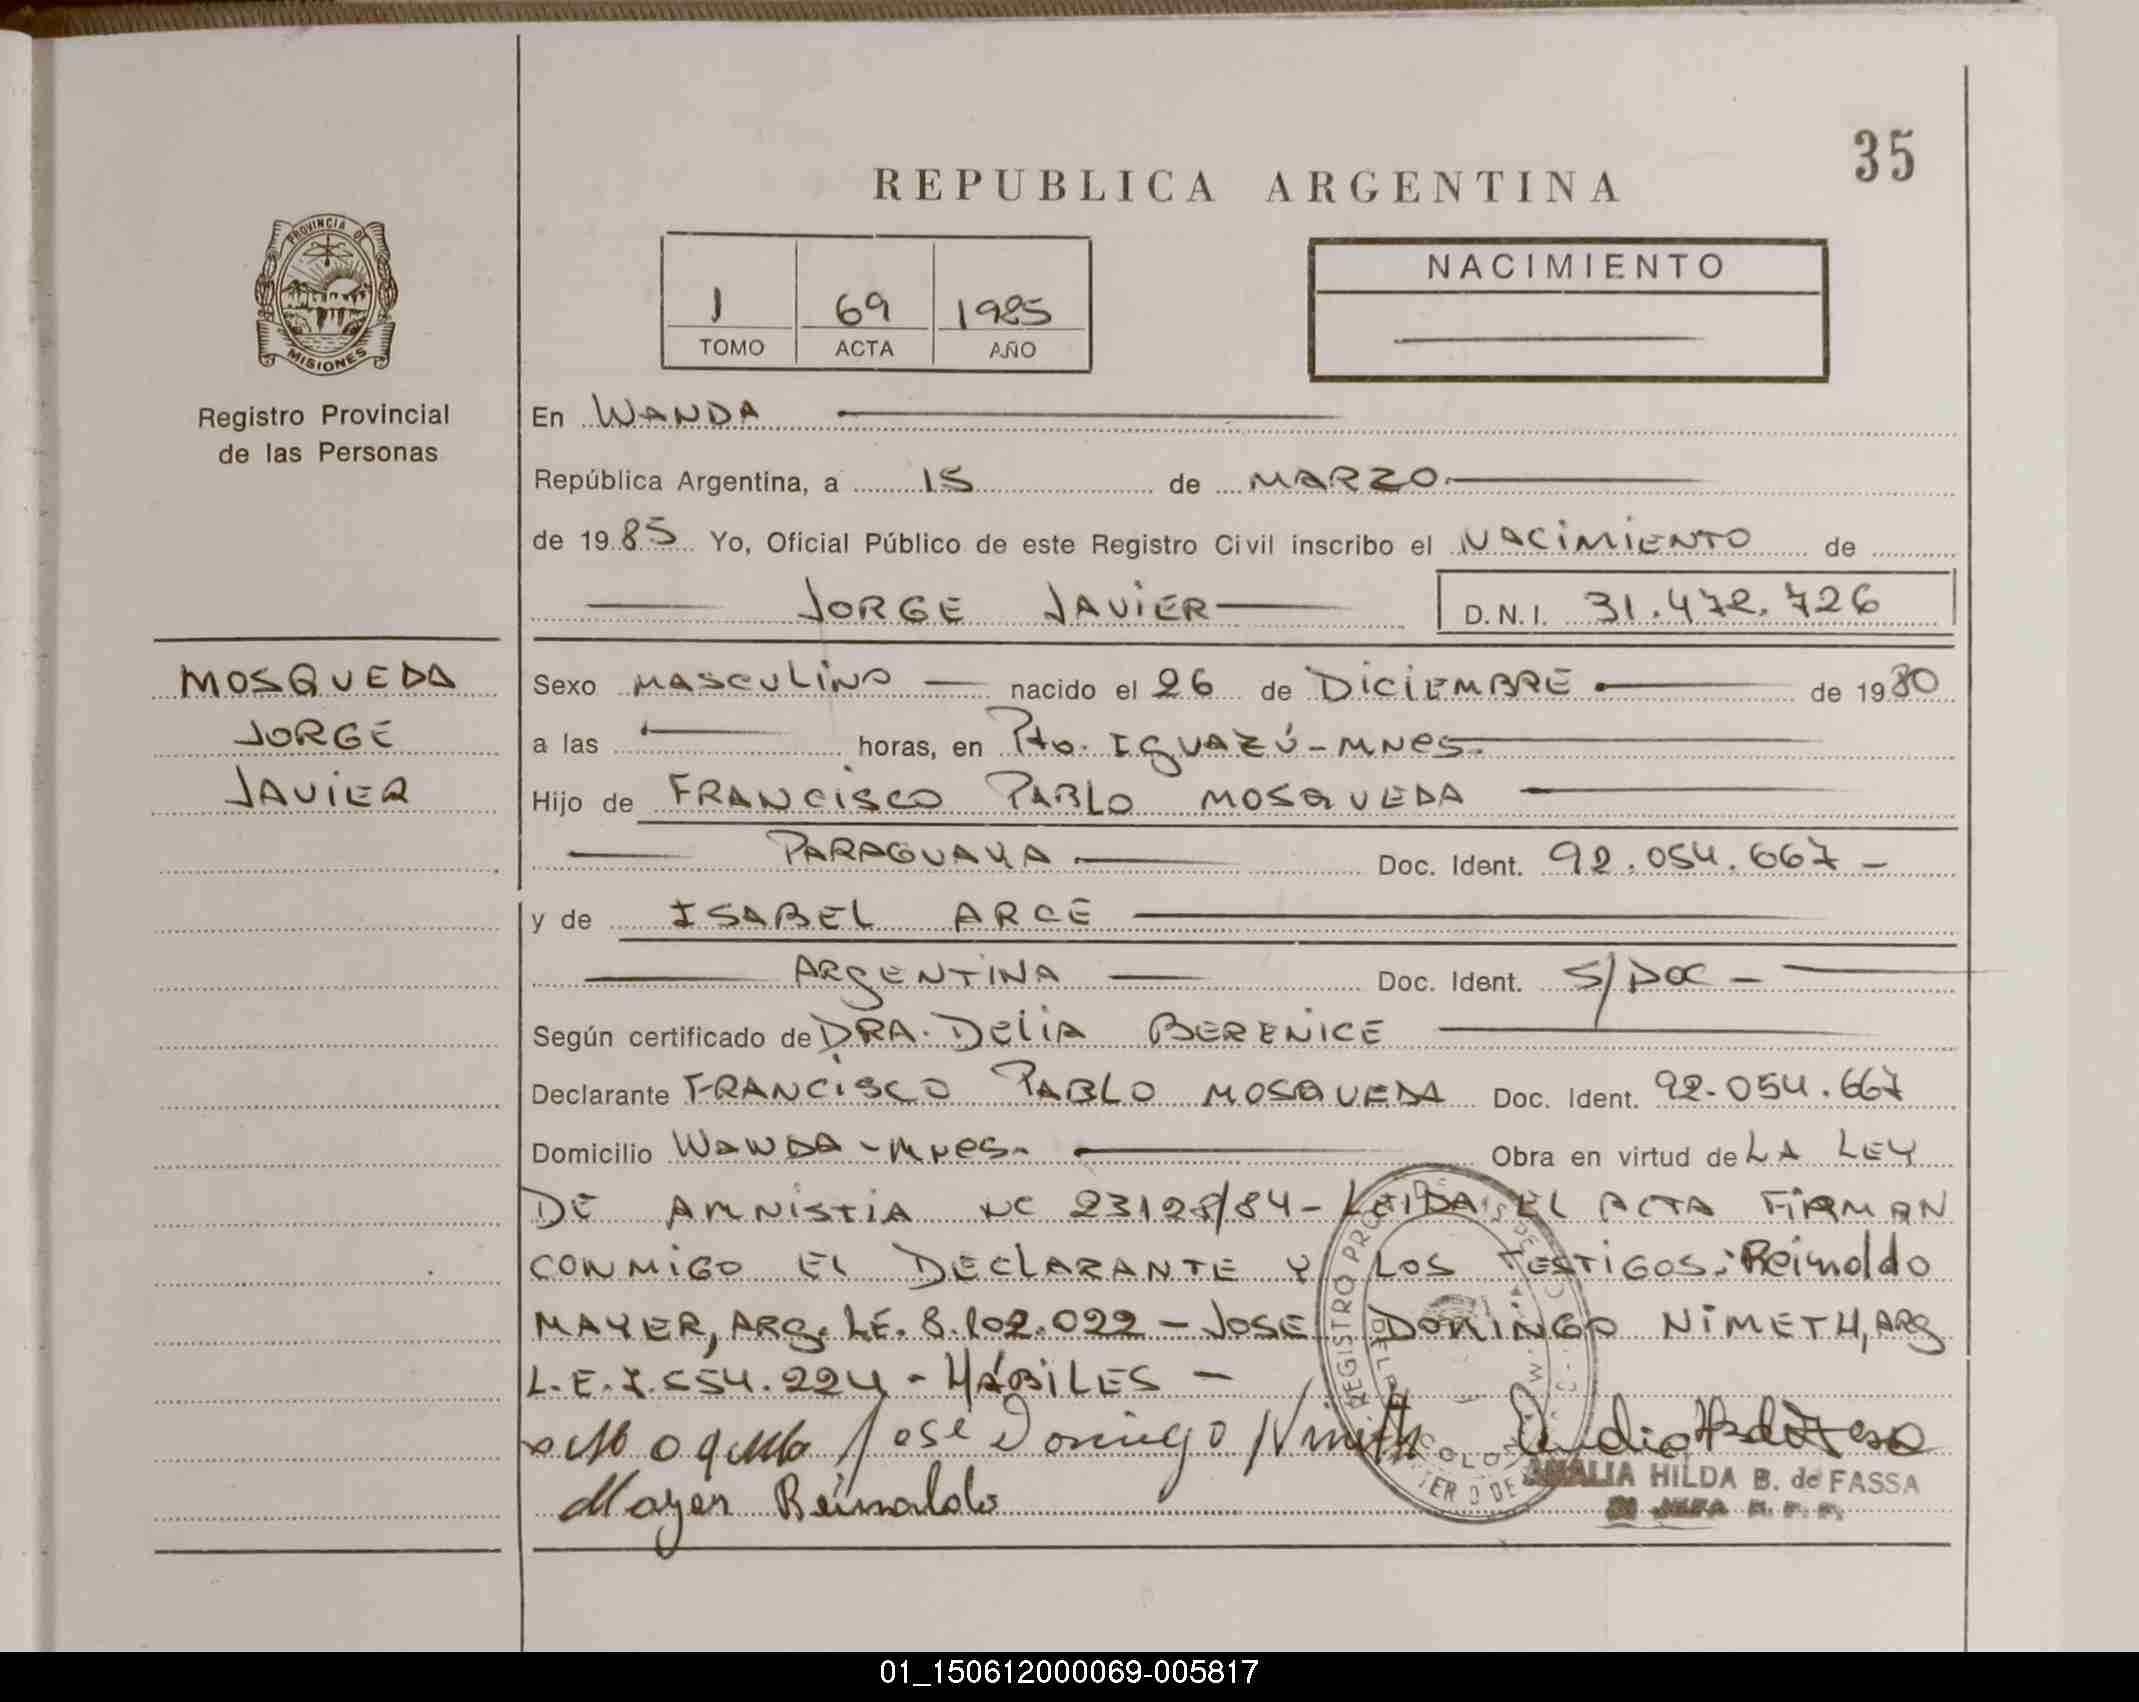 35
REPUBLICA ARGENTINA
PROVINCIA DE
MISIONES
Registro Provincial
de las Personas
1 69 1985
TOMO ACTA AÑO
NACIMIENTO
En WANDA
República Argentina, a 15 de MARZO
de 1985 Yo, Oficial Público de este Registro Civil inscribo el NACIMIENTO de
JORGE JAVIER D.N.I. 31.472.726
MOSQUEDA
JORGE
JAVIER
Sexo MASCULINO nacido el 26 de DICIEMBRE de 1980
a las horas, en Pto. IGUAZÚ - MNES.
Hijo de FRANCISCO PABLO MOSQUEDA
PARAGUAYA Doc. Ident. 92.054.667 -
y de ISABEL ARCE
ARGENTINA Doc. Ident. S/DOC -
Según certificado de DRA. DELIA BERENICE
Declarante FRANCISCO PABLO MOSQUEDA Doc. Ident. 92.054.667
Domicilio WANDA - MNES. Obra en virtud de LA LEY
DE AMNISTIA NC 23128/84 - LEIDA EL ACTA FIRMAN
CONMIGO EL DECLARANTE Y LOS TESTIGOS: Reinoldo
MAYER, ARG. LE. 8.102.022 - JOSE DOMINGO NIMETH, ARG
L.E. 554.224 - HÁBILES -
José Domingo Nimeth
Mayer Reinoldo
REGISTRO PRO
AMALIA HILDA B. de FASSA
JEFA R. P. P.
01_150612000069-005817